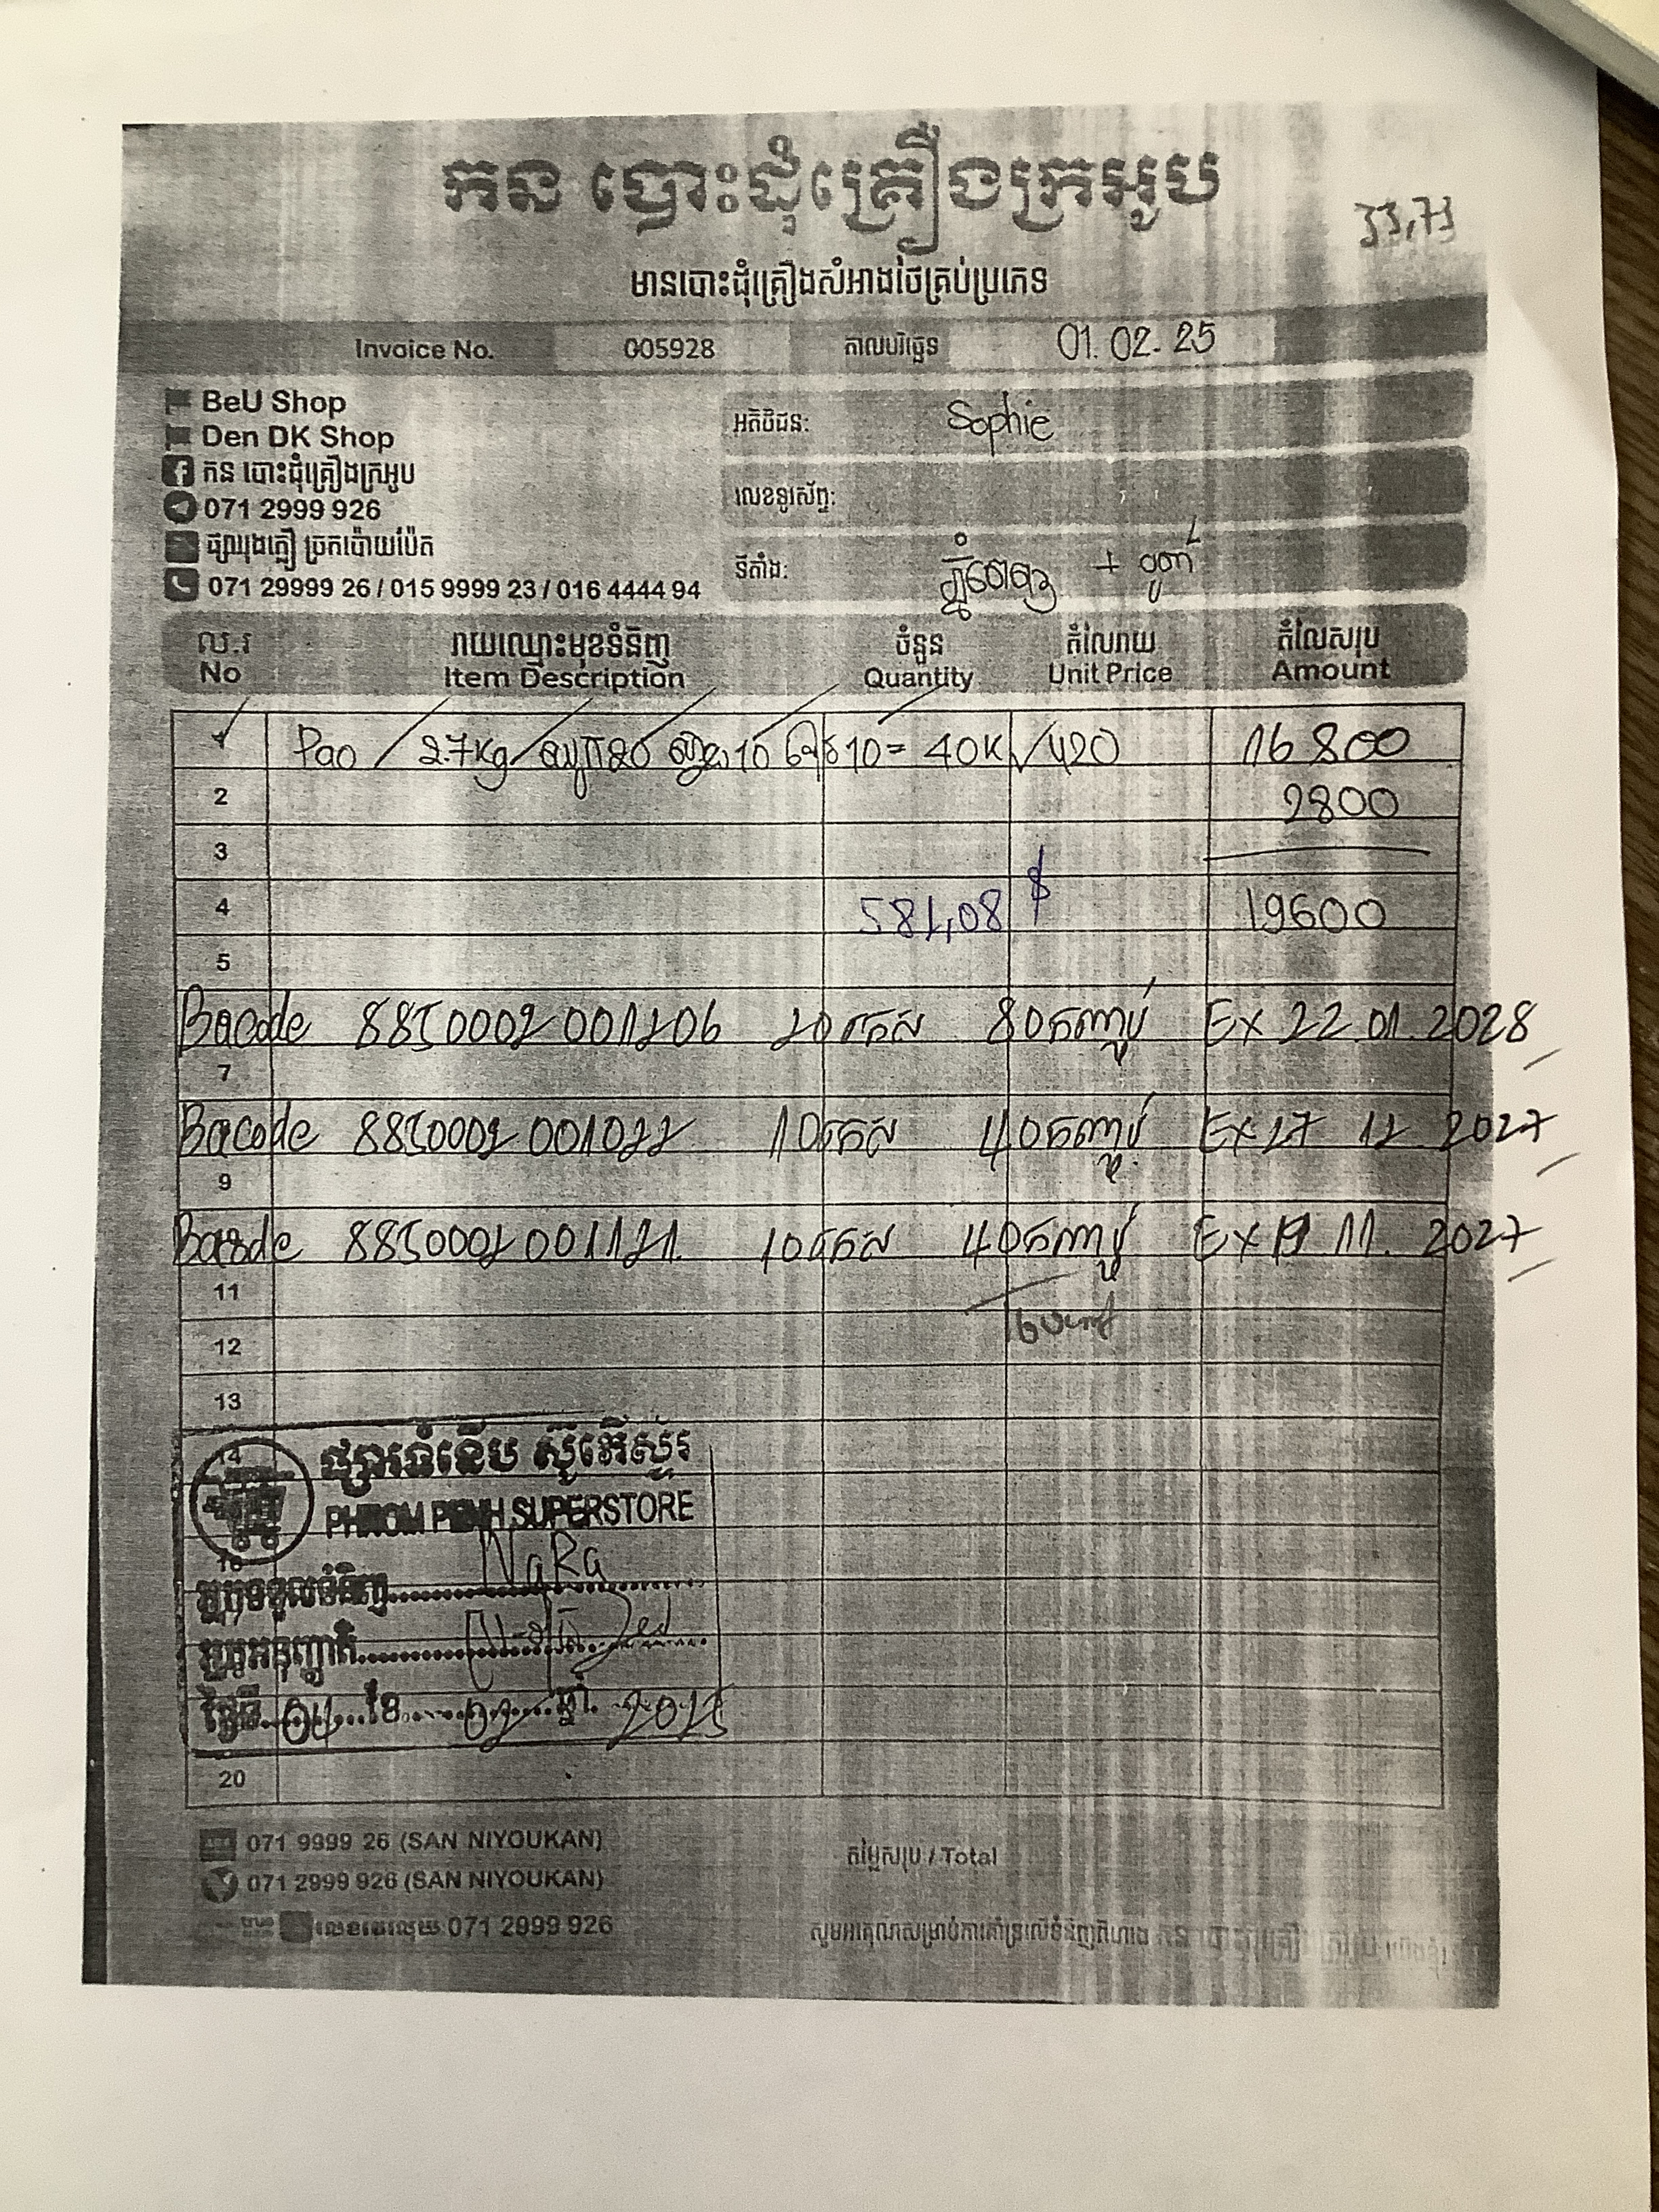 កន បោះដុំគ្រឿងក្រអូប
33,73
មានបោះដុំគ្រឿងសំអាងថៃគ្រប់ប្រភេទ
Invoice No. 005928 កាលបរិច្ឆេទ 01.02.25
BeU Shop
Den DK Shop
កន បោះដុំគ្រឿងក្រអូប
071 2999 926
ផ្សារុងភ្លឿ ច្រកប៉ោយប៉ែត
071 29999 26 / 015 9999 23 / 016 4444 94
អតិថិជន: Sophie
លេខទូរស័ព្ទ:
ទីតាំង: ភ្នំពេញ +
ល.រ រាយឈ្មោះមុខទំនិញ ចំនួន តំលៃរាយ តំលៃសរុប
No Item Description Quantity Unit Price Amount
1 Pao / 2.7Kg / 10 10 = 40K /420 16800
2 2800
3
4 581,08 $ 19600
5
Bacode 8850002001206 20កេស 80កញ្ចប់ Ex 22.01.2028
7
Bacode 8850002001022 10កេស 40កញ្ចប់ Ex 27 12 2027
9
Barcde 8850002001121. 10កេស 40កញ្ចប់ Ex 19 11. 2027
11
12
13
14 ផ្សារទំនើប ស៊ូភើស្ទ័រ
PHNOM PENH SUPERSTORE
អ្នកទទួលទំនិញ NaRa
អ្នកអនុញ្ញាតិ
ថ្ងៃទី 04 ខែ 02 ឆ្នាំ 2025
20
071 9999 26 (SAN NIYOUKAN)
071 2999 926 (SAN NIYOUKAN)
071 2999 926
តម្លៃសរុប / Total
សូមអរគុណសម្រាប់ការគាំទ្រលើទំនិញពីហាង កន